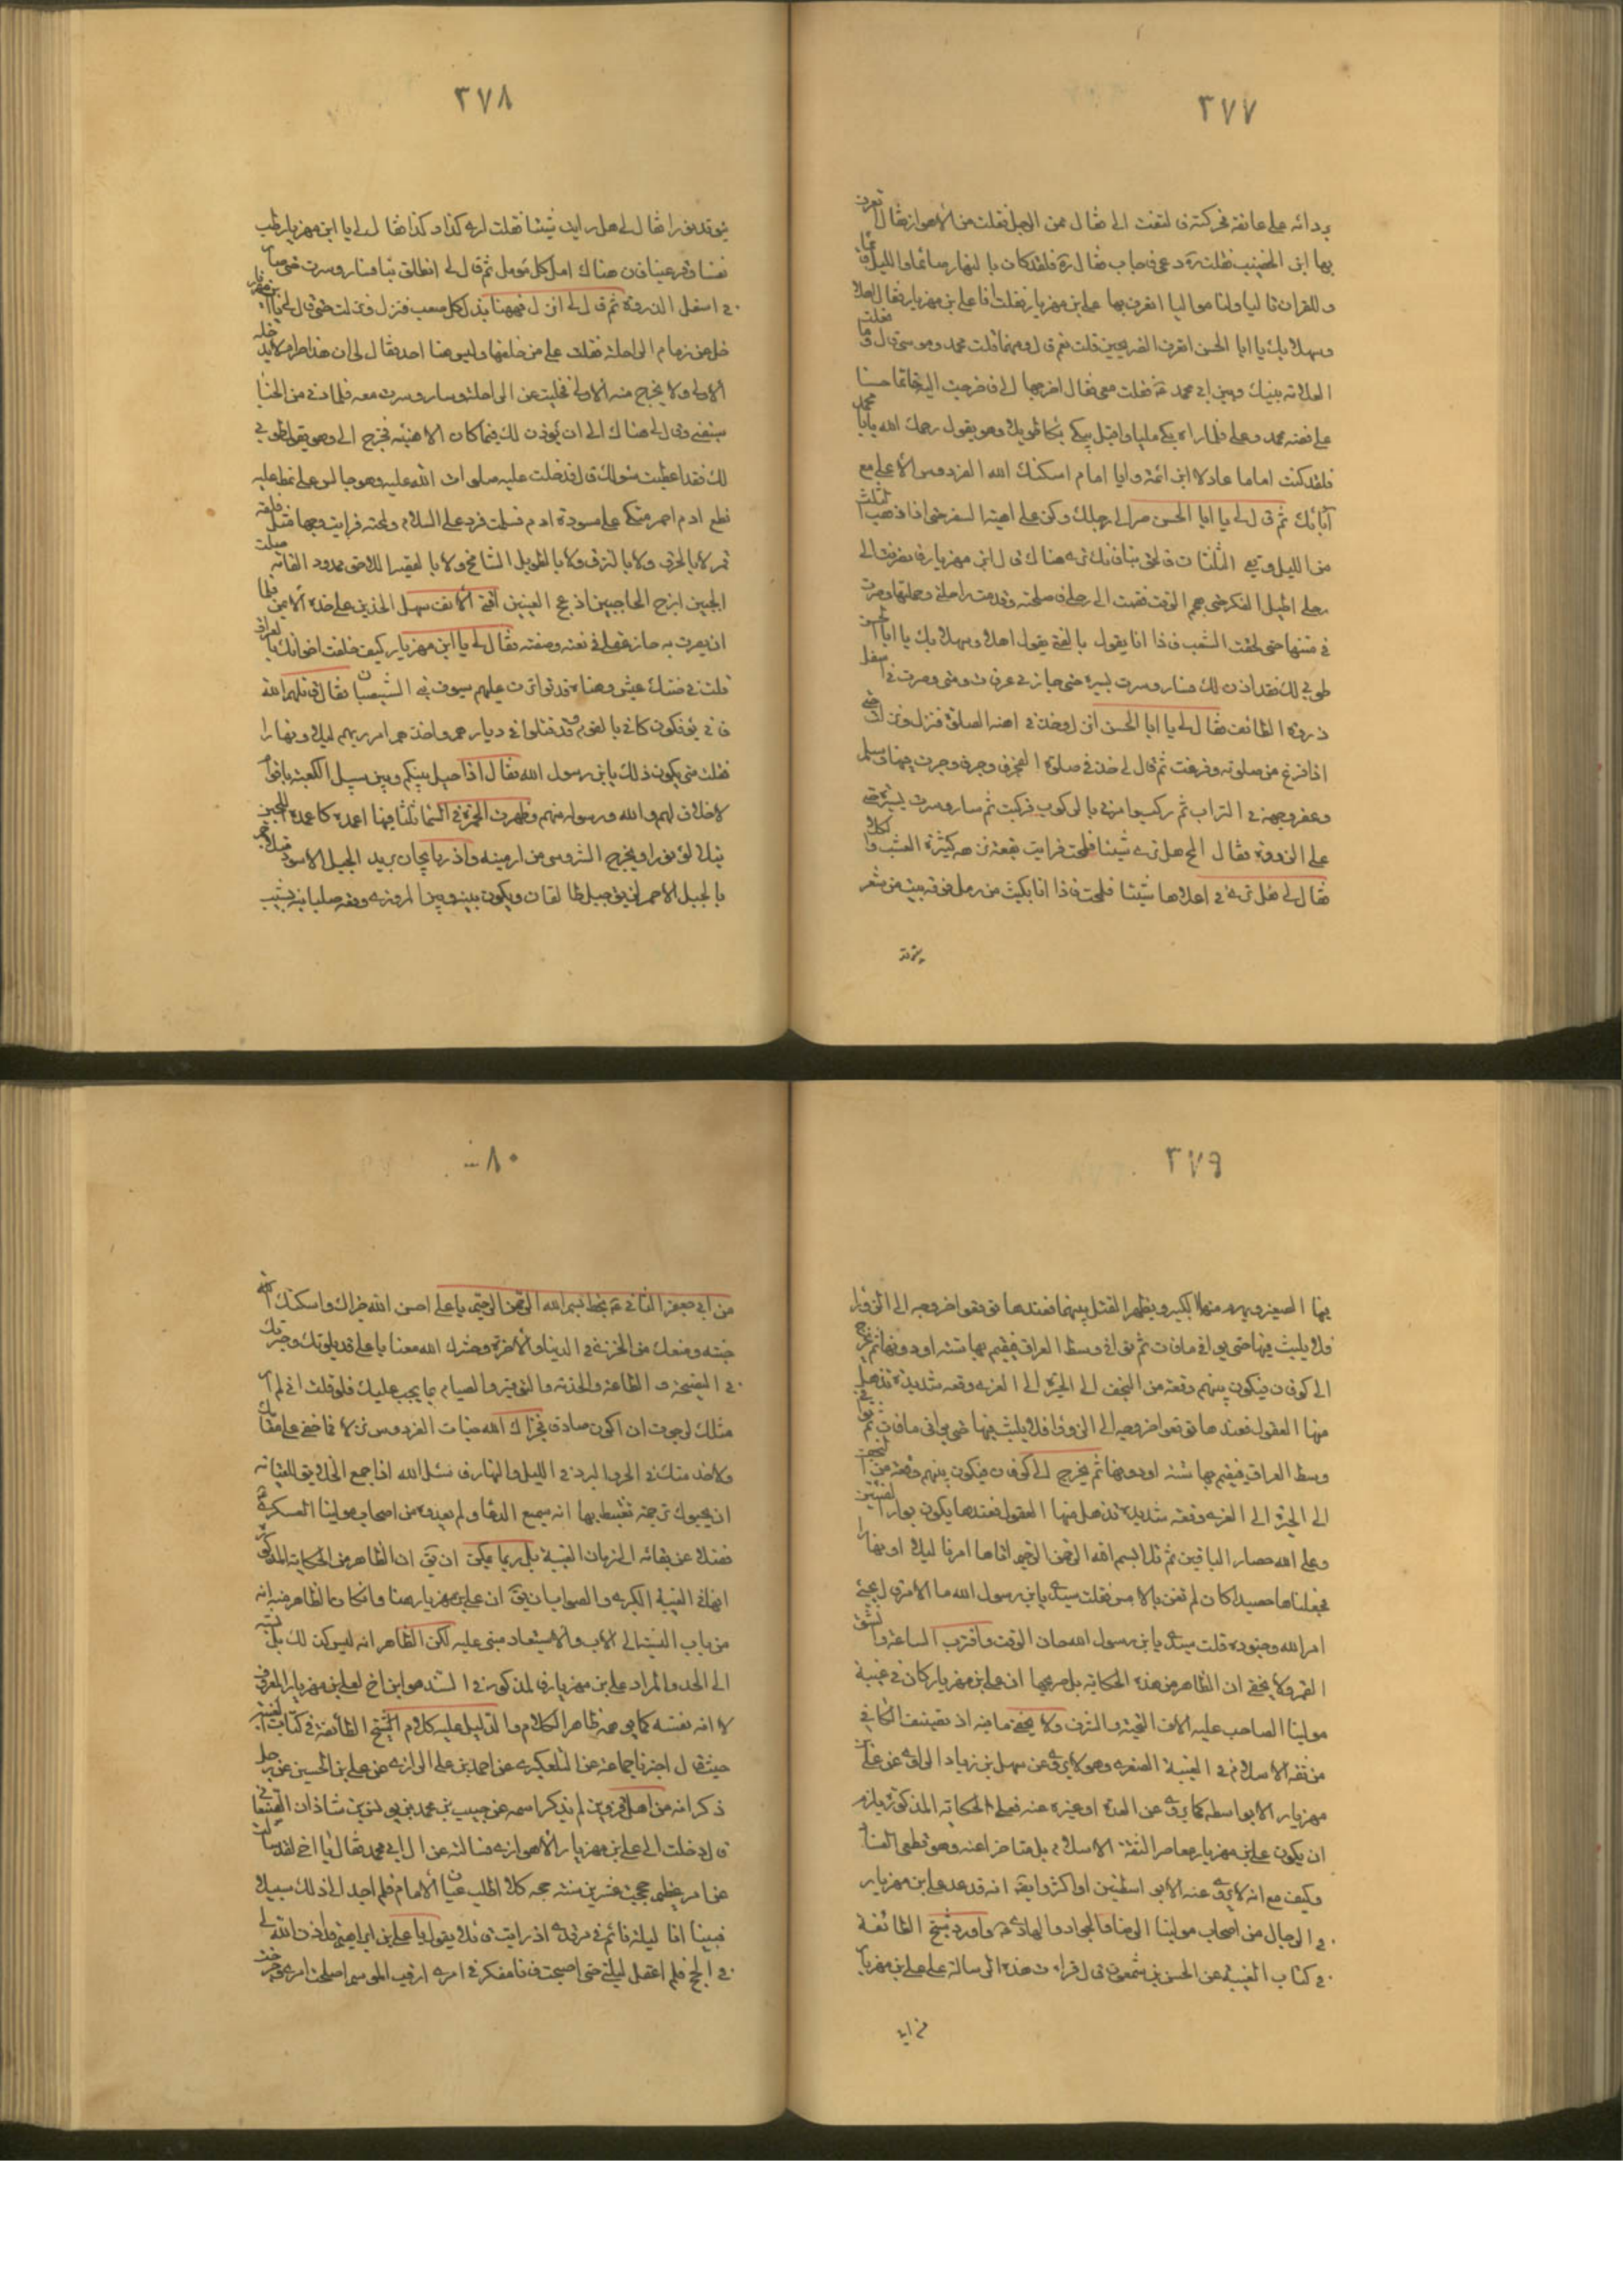 ٣٧٧
بردائه على عاتقه فحركته فالتفت الي فقال ممن الرجل فقلت من الاهواز فقال تعرف
بها ابن الخضيب فقلت ره دعي فاجاب فقال ره فلقد كان بالنهار صائما و بالليل قائما
و للقران تاليا ولنا مواليا اتعرف بها علي بن مهزيار فقلت انا علي بن مهزيار فقال اهلا
وسهلا بك يا ابا الحسن اتعرف الضريحين قلت نعم قال ومنهما قلت محمد وموسى قال وما فعلت
العلامة بينك وبين ابي محمد ع فقلت معي فقال اخرجها الي فاخرجت اليه خاتما حسنا
على فصه محمد وعلي فلما راه بكى مليا واقبل يبكي بكاء طويلا وهو يقول رحمك الله يا ابا محمد
فلقد كنت اماما عادلا ابن ائمة وابا امام اسكنك الله الفردوس الاعلى مع
آبائك ثم قال لي يا ابا الحسن صر الى رحلك وكن على اهبة السفر حتى اذا ذهب الثلث
من الليل وبقي الثلثان فالحق بنا فانك ترى مناك قال ابن مهزيار فانصرفت الى
رحلي اطيل الفكر حتى هجم الوقت فقمت الى رحلي فاصلحته وقدمت راحلتي وحملتها وصرت
في متنها حتى لحقت الشعب فاذا انا بالفتى يقول اهلا وسهلا بك يا ابا الحسن
طوبى لك فقد اذن لك فسار وسرت بسيره حتى جاز بي عرفات ومنى وصرت في اسفل
ذروة الطائف فقال لي يا ابا الحسن انزل وخذ في اهبة الصلوة فنزل ونزلت حتى
اذا فرغ من صلوته وفرغت ثم قال لي خذ في صلوة الفجر واوجز فاوجزت فيها وسلم
وعفر وجهه في التراب ثم ركب وامرني بالركوب فركبت ثم سار وسرت بسيره حتى
علا الذروة فقال المح هل ترى شيئا فلمحت فرايت بقعة نزهة كثيرة العشب والكلاء
فقال لي هل ترى في اعلاها شيئا فلمحت فاذا انا بكثيب من رمل فوقه بيت من شعر
يتوقد
٣٧٨
يتوقد نورا فقال لي هل رايت شيئا فقلت ارى كذا وكذا فقال لي يا ابن مهزيار طب
نفسا وقر عينا فان هناك امل كل مؤمل ثم قال لي انطلق بنا فسار وسرت حتى صار
في اسفل الذروة ثم قال لي انزل فههنا يذل كل صعب فنزل ونزلت حتى قال لي يا ابن مهزيار
خل عن زمام الراحلة فقلت على من اخلفها وليس هنا احد فقال لي ان هذا حرم لا يدخله
الا ولي ولا يخرج منه الا ولي فخليت عن الراحلة وسار وسرت معه فلما دنى من الخباء
سبقني وقال لي هناك الى ان يؤذن لك فما كان الا هنيئة فخرج الي وهو يقول طوبى
لك فقد اعطيت سؤلك قال فدخلت عليه صلوات الله عليه وهو جالس على نمط عليه
نطع ادم احمر متكئ على مسورة ادم فسلمت فرد علي السلام ولمحته فرايت وجها مثل فلقة
قمر لا بالخرق ولا بالنزق ولا بالطويل الشامخ ولا بالقصير اللاصق ممدود القامة صلت
الجبين ازج الحاجبين ادعج العينين اقنى الانف سهل الخدين على خده الايمن خال فلما
ان بصرت به حار عقلي في نعته وصفته فقال لي يا ابن مهزيار كيف خلفت اخوانك بالعراق
قلت في ضنك عيش وهناة قد تواترت عليهم سيوف بني الشيصبان فقال قاتلهم الله
انى يؤفكون كاني بالقوم قد قتلوا في ديارهم واخذهم امر ربهم ليلا ونهارا
فقلت متى يكون ذلك يا ابن رسول الله فقال اذا حيل بينكم وبين سبيل الكعبة باقوام
لا خلاق لهم والله ورسوله منهم وظهرت الحمرة في السماء ثلثا فيها اعمدة كاعمدة اللجين
يتلألؤ نورا ويخرج الشروسي من ارمينية وآذربايجان يريد الجبل الاسود المتلاحم
بالجبل الاحمر لزيق جبل طالقان ويكون بينه وبين المروزي وقعة صليانية يشيب
٣٧٩
فيها الصغير ويهرم منها الكبير ويظهر القتل بينهما فعندها توقعوا خروجه الى الزوراء
فلا يلبث فيها حتى يوافي ماهات ثم يوافي وسط العراق فيقيم بها سنة او دونها ثم يخرج
الى كوفان فيكون بينهم وقعة من النجف الى الحيرة الى الغري وقعة شديدة تذهل
منها العقول فعندها توقعوا خروجه الى الزوراء فلا يلبث فيها حتى يوافي ماهات ثم يوافي
وسط العراق فيقيم بها سنة او دونها ثم يخرج الى كوفان فيكون بينهم وقعة من النجف
الى الحيرة الى الغري وقعة شديدة تذهل منها العقول فعندها يكون بوار الفئتين
وعلى الله حصاد الباقين ثم تلا بسم الله الرحمن الرحيم اتاها امرنا ليلا او نهارا
فجعلناها حصيدا كان لم تغن بالامس فقلت سيدي يا ابن رسول الله ما الامر قال نحن
امر الله وجنوده قلت سيدي يا ابن رسول الله حان الوقت واقترب الساعة وانشق
القمر ولا يخفى ان الظاهر من هذه الحكاية بل صريحها ان علي بن مهزيار كان في غيبة
مولينا الصاحب عليه الاف التحية والشرف ولا يخفى ما فيه اذ تصنيف الكافي
من ثقة الاسلام في الغيبة الصغرى وهو لا يروي عن سهل بن زياد الراوي عن علي بن
مهزيار الا بواسطة كما يروي عن العدة او غيره عنه فعلى الحكاية المذكورة يلزم
ان يكون علي بن مهزيار معاصر الثقة الاسلام بل متاخرا عنه وهو قطعي الفساد
وكيف مع انه لا يروي عنه الا بواسطتين او اكثر وايضا انه قد عد علي بن مهزيار
في الرجال من اصحاب مولينا الرضا والجواد والهادي ع واورد شيخ الطائفة
في كتاب الغيبة عن الحسن بن شمعون قال قرات هذه الرسالة على علي بن مهزيار
من ابي
٨٠
من ابي جعفر الثاني ع بخطه بسم الله الرحمن الرحيم يا علي احسن الله جزاك واسكنك الله
جنته ومنعك من الخزي في الدنيا والاخرة وحشرك الله معنا يا علي قد بلوتك وخبرتك
في النصيحة والطاعة والخدمة والتوقير والقيام بما يجب عليك فلو قلت اني لم ار
مثلك لرجوت ان اكون صادقا فجزاك الله جنات الفردوس نزلا فما خفي علي مقامك
ولا خدمتك في الحر والبرد في الليل والنهار فاسئل الله اذا جمع الخلايق للقيامة
ان يحبوك برحمة تغتبط بها انه سميع الدعاء ولم يعدوه من اصحاب مولينا العسكري ع
فضلا عن بقائه الى زمان الغيبة بل ربما يمكن ان يق ان الظاهر من الحكاية المذكورة
انها في الغيبة الكبرى والصواب ان يق ان علي بن مهزيار هنا وان كان الظاهر منه انه
من باب النسبة الى الاب والاستبعاد مبني عليه لكن الظاهر انه ليس كذلك بل نسبته
الى الجد والمراد علي بن مهزيار في المذكور في السند هو ابن اخ لعلي بن مهزيار المعروف
لا انه نفسه كما يوهمه ظاهر الكلام والدليل عليه كلام الشيخ الطائفة في كتاب الغيبة
حيث قال اخبرنا جماعة عن التلعكبري عن احمد بن علي الرازي عن علي بن الحسين عن رجل
ذكر انه من اهل قزوين لم يذكر اسمه عن حبيب بن محمد بن يونس بن شاذان الصنعاني
قال دخلت الى علي بن مهزيار الاهوازي فسالته عن ال ابي محمد فقال يا اخي لقد سالت
عن امر عظيم حججت عشرين حجة كلا اطلب عيان الامام فلم اجد الى ذلك سبيلا
فبينا انا ليلة نائم في مرقدي اذ رايت قائلا يقول يا علي بن ابراهيم قد اذن الله لي
في الحج فلم اعقل ليلتي حتى اصبحت فانا مفكر في امري ارقب الموسم اصلحت امري وخرجت